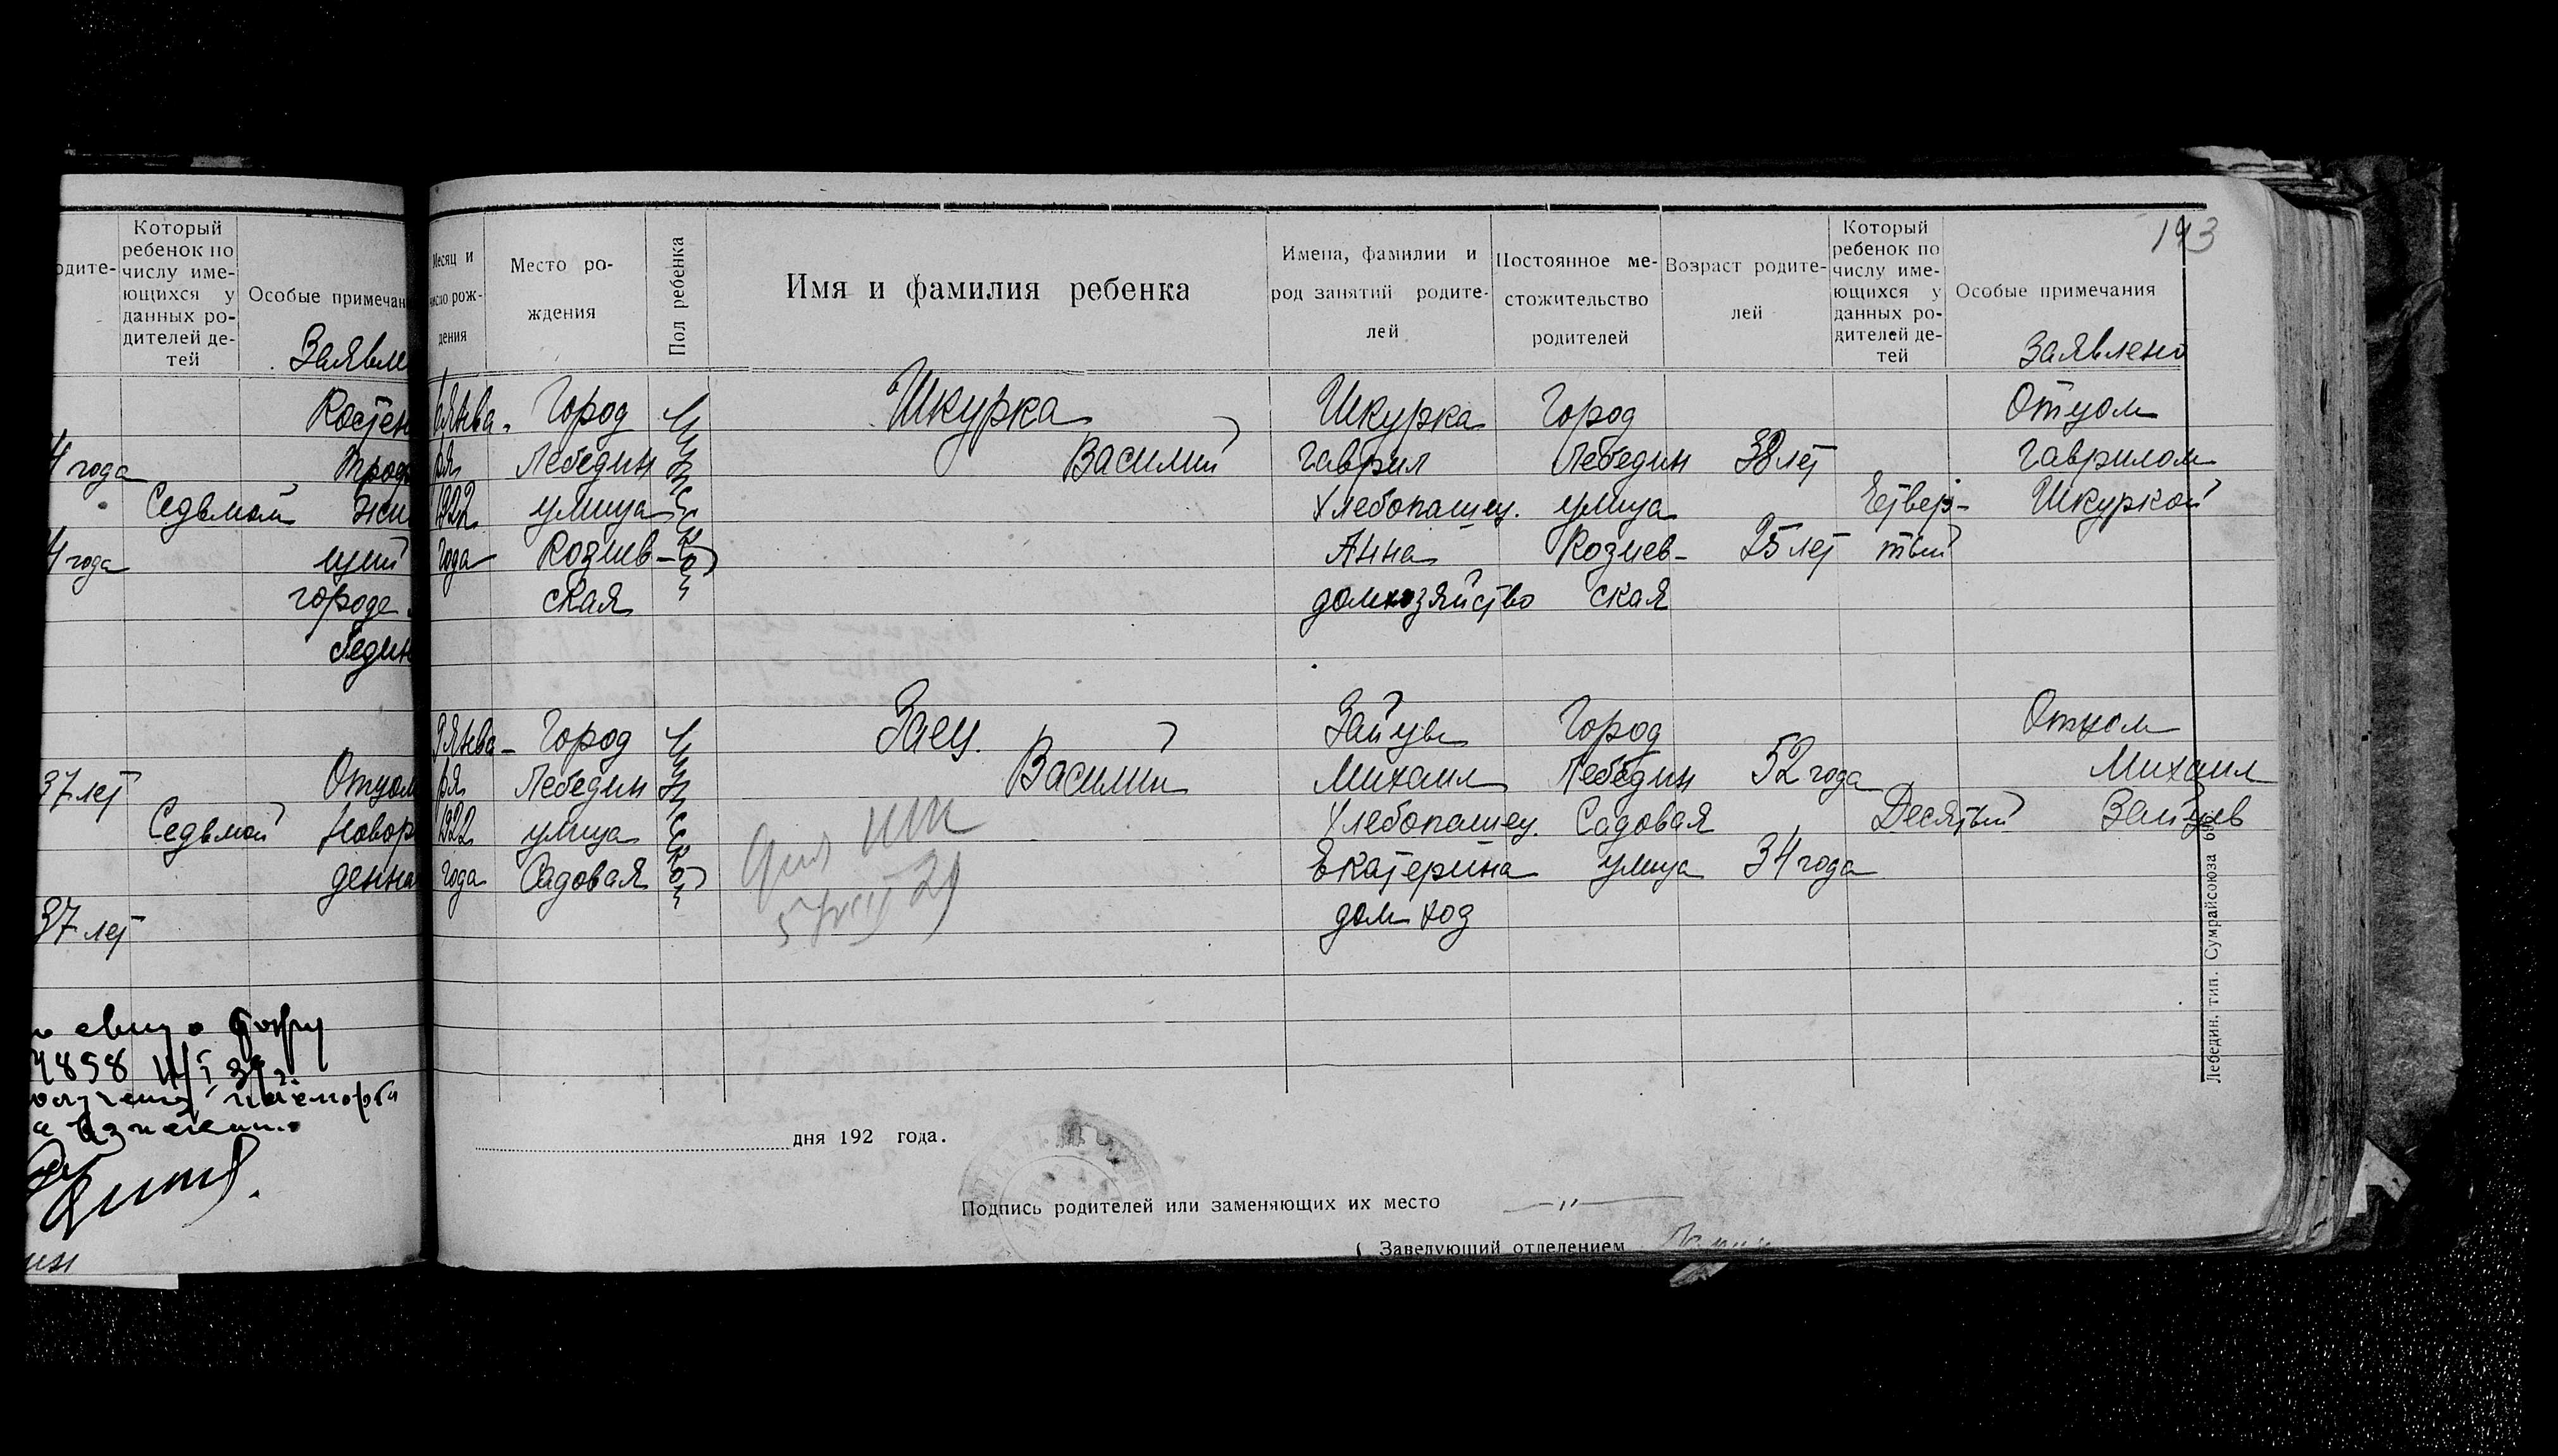 Который
ребенок по
числу име-
ющихся у
данных ро-
дителей де-
тей
Особые примечан
Заявле
Костен
4 года
Проф
Седьмой
жи
4 года
щий
городе
бедин
37 лет
Отцом
Седьмой
Новор
денна
37 лет
4858
143
Месяц и
число рож-
дения
Место ро-
ждения
Пол ребенка
Имя и фамилия ребенка
Имена, фамилии и
род занятий родите-
лей
Постоянное ме-
стожительство
родителей
Возраст родите-
лей
Который
ребенок по
числу име-
ющихся у
данных ро-
дителей де-
тей
Особые примечания
Заявлено
Янва-
ря
1922
года
Город
Лебедин
улица
Козиев-
ская
Мужской
Шкурка
Василий
Шкурка
Гаврил
Хлебопашец.
Анна
домхозяйство
Город
Лебедин
улица
Козиев-
ская
38 лет
25 лет
Четвер-
тый
Отцом
Гаврилом
Шкуркой
9 Янва-
ря
1922
года
Город
Лебедин
улица
Садовая
Мужской
Заец.
Василий
Зайцев
Михаил
Хлебопашец.
Екатерина
дом хоз
Город
Лебедин
Садовая
улица
52 года
34 года
Десятый
Отцом
Михаил
Зайцев
дня 192 года.
Подпись родителей или заменяющих их место
Заведующий отделением
Лебедин, тип. Сумрайсоюза